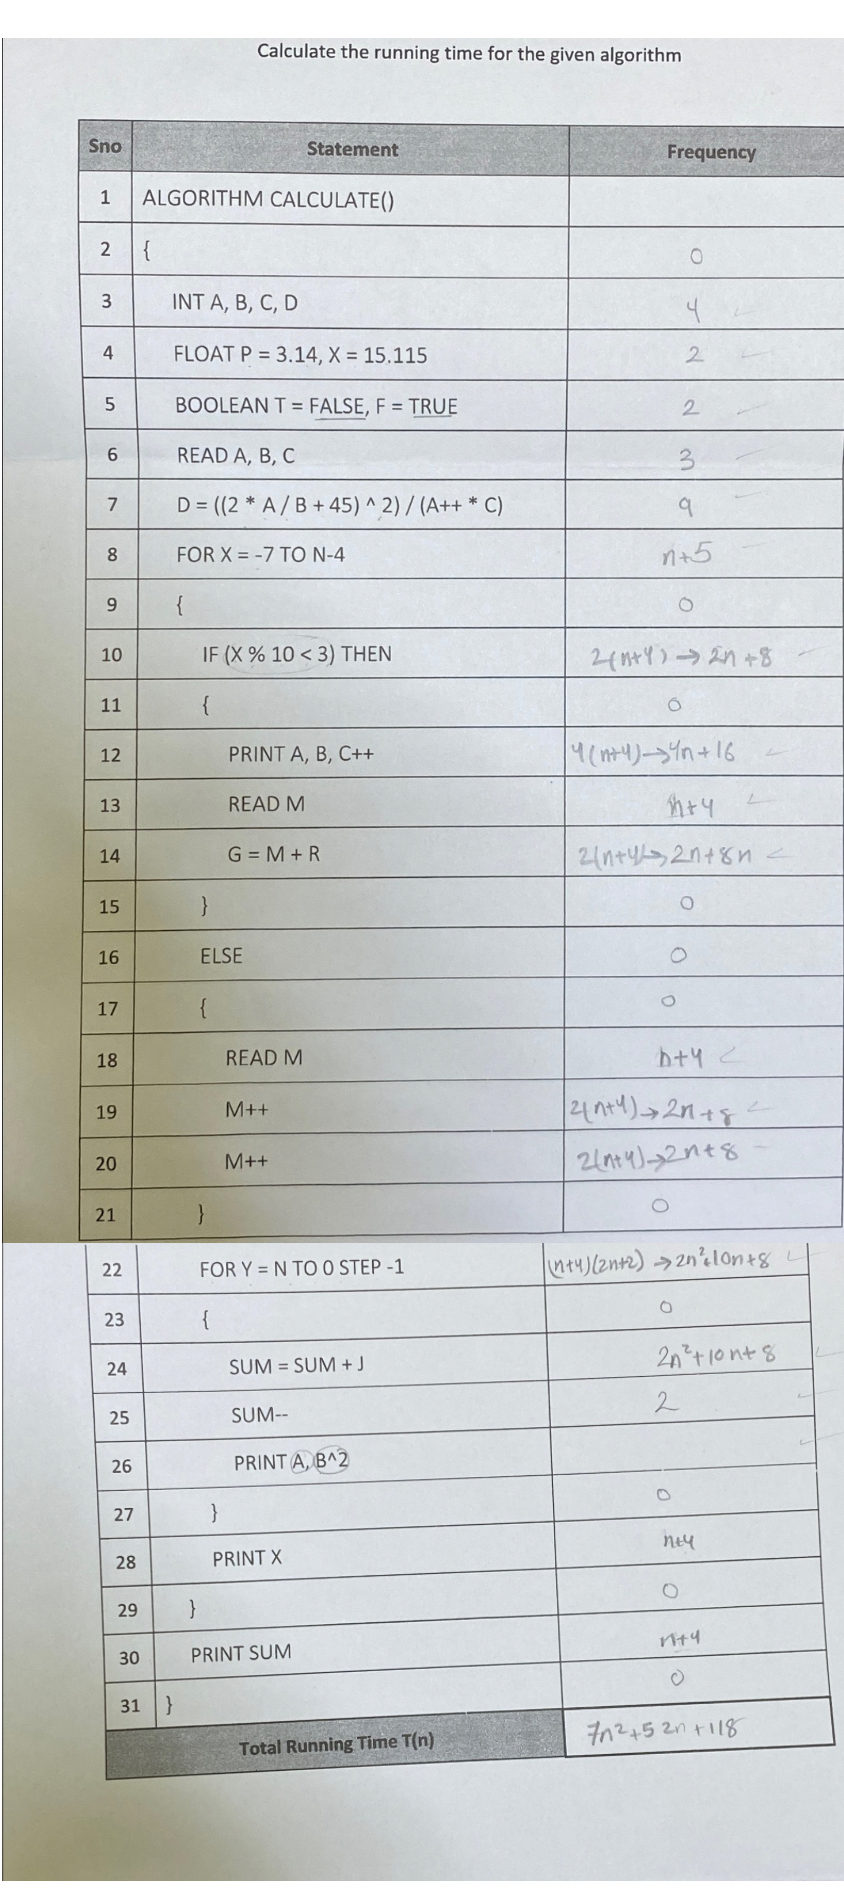 Calculate the running time for the given algorithm
Sno Statement Frequency
1 ALGORITHM CALCULATE()
2 { 0
3 INT A, B, C, D 4
4 FLOAT P = 3.14, X = 15.115 2
5 BOOLEAN T = FALSE, F = TRUE 2
6 READ A, B, C 3
7 D = ((2 * A / B + 45) ^ 2) / (A++ * C) 9
8 FOR X = -7 TO N-4 n+5
9 { 0
10 IF (X % 10 < 3) THEN 2(n+4) → 2n+8
11 { 0
12 PRINT A, B, C++ 4(n+4)→4n+16
13 READ M n+4
14 G = M + R 2(n+4)→2n+8n
15 } 0
16 ELSE 0
17 { 0
18 READ M n+4
19 M++ 2(n+4)→2n+8
20 M++ 2(n+4)→2n+8
21 } 0
22 FOR Y = N TO 0 STEP -1 (n+4)(2n+2) → 2n²+10n+8
23 { 0
24 SUM = SUM + J 2n²+10n+8
25 SUM-- 2
26 PRINT A, B^2
27 } 0
28 PRINT X n+4
29 } 0
30 PRINT SUM n+4
31 } 0
Total Running Time T(n) 7n²+52n+118